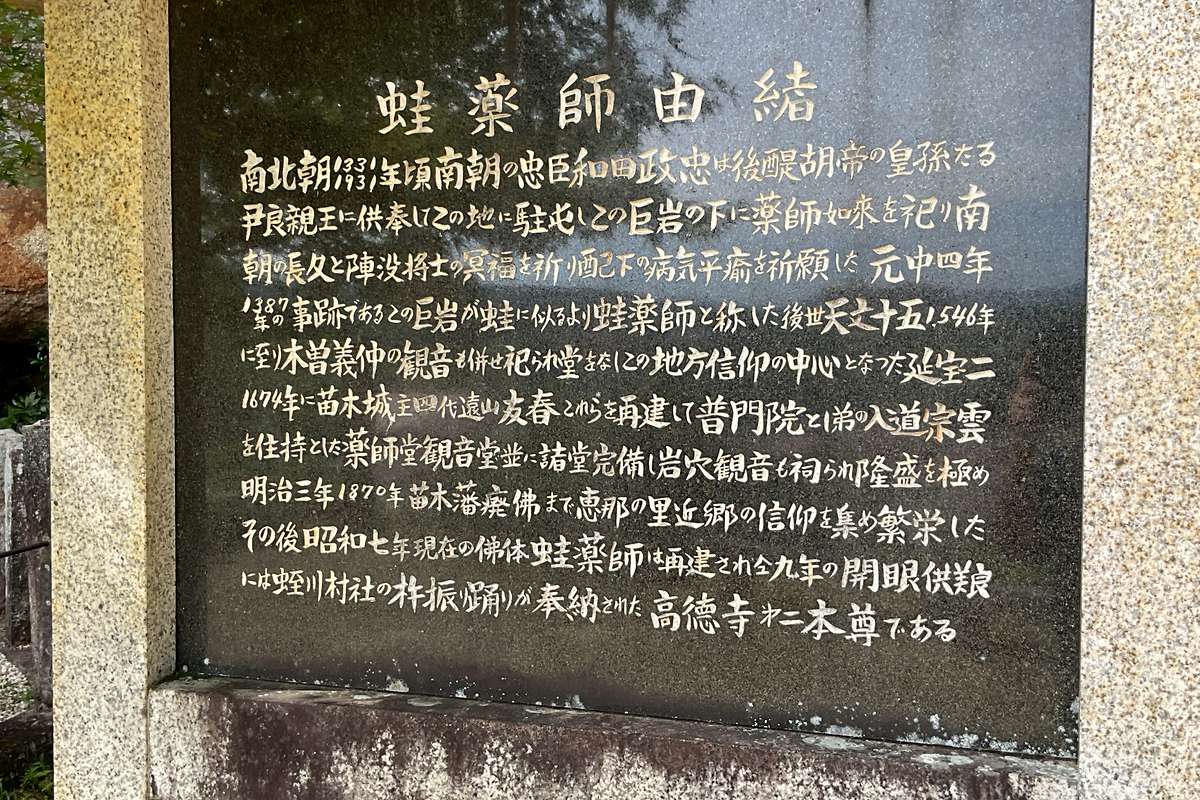 蛙薬師由緒
南北朝1331 1931年頃南朝の忠臣和田政忠は後醍胡帝の皇孫たる
尹良親王に供奉してこの地に駐屯しこの巨岩の下に薬師如来を祀り南
朝の長久と陣没将士の冥福を祈り配下の病気平癒を祈願した 元中四年
1387年の事跡であるこの巨岩が蛙に似るより蛙薬師と称した後世天文十五1.546年
に至り木曽義仲の観音も併せ祀られ堂をなしこの地方信仰の中心となった延宝二
1674年に苗木城主四代遠山友春これらを再建して普門院とし弟の入道宗雲
を住持とした薬師堂観音堂並に諸堂完備し岩穴観音も祠られ隆盛を極め
明治三年1870年苗木藩廃佛まで恵那の里近郷の信仰を集め繁栄した
その後昭和七年現在の佛体蛙薬師は再建され仝九年の開眼供養
には蛭川村社の杵振り踊りが奉納された 高徳寺㐧二本尊である